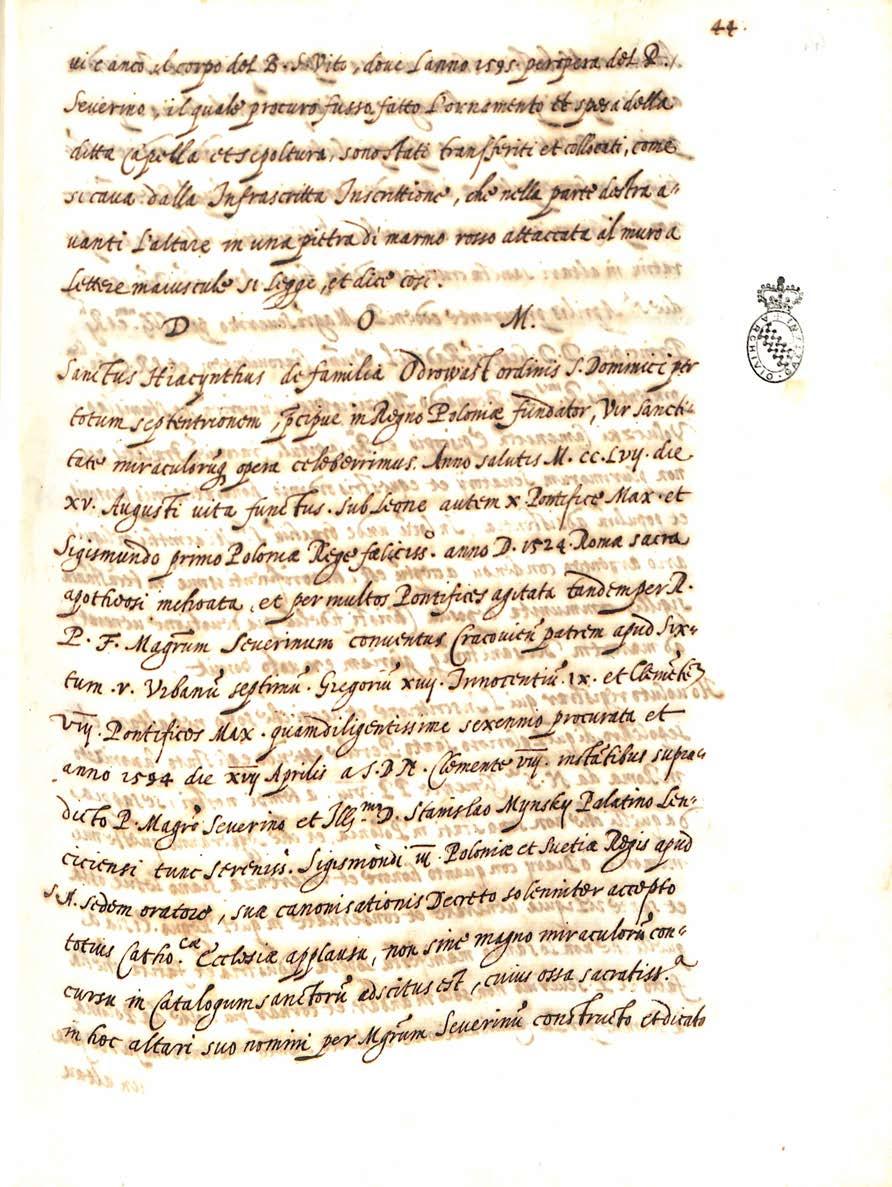 44.
vi è anco il corpo del B. S. Vito, dove l'anno 1595. per opera del P.
Severino, il quale procuro fusse fatto l'ornamento et spesa della
ditta Capella et sepoltura, sono stati transferiti et collocati, come
si cava dalla Infrascritta Inscrittione, che nella parte destra a-
vanti l'altare in una pietra di marmo rosso attaccata al muro a
lettere maiuscule si legge, et dice cosi.
D O M.
Sanctus Hiacynthus de familia Odrowasl ordinis S. Dominici per
totum septentrionem, p̄cipue in Regno Poloniæ fundator, Vir sancti-
tate miraculorūq opera celeberrimus. Anno salutis M. cc. Lvij. die
xv. Augusti vita functus. sub Leone autem x Pontifice Max. et
Sigismundo primo Poloniæ Rege fæliciss.º anno D. 1524. Romæ sacra
apotheosi inchoata, et per multos Pontifices agitata tandem per R.
P. F. Magr̄um Severinum conventus Cracovieñ patrem apud Six-
tum .v. Urbanū septimū. Gregoriū xiiij. Innocentiū. ix. et Clemēte
Viij. Pontifices Max. quamdiligentissime sexennio procurata et
anno 1594 die xvij Aprilis a S. D. N. Clemente viij. instātibus supra-
dicto P. Magrō Severino et Ill.mo D. Stanislao Mynsky Palatino Len-
ciciensi tunc Sereniss. Sigismōndi iij. Poloniæ et Suetiæ Regis apud
S. A. sedem oratore, suæ canonisationis Decreto solenniter accepto
totius Catho.cæ Ecclesiæ applausu, non sine magno miraculorū con-
cursu in Catalogum sanctorū adscitus est, cuius ossa sacratiss.a
in hoc altari suo nomini per Mgr̄um Severinū constructo et dicato
ARCHIVIO GALLINI